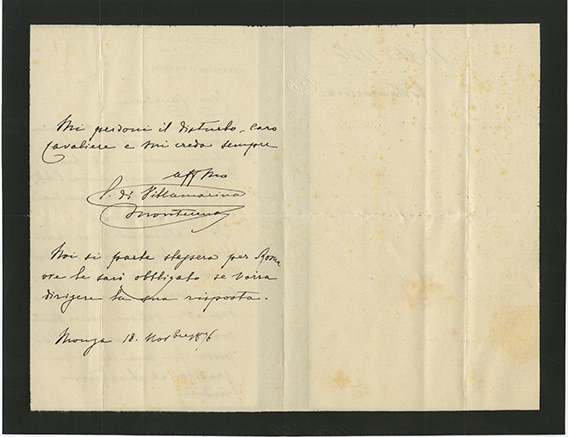 Mi perdoni il disturbo, caro
Cavaliere e mi creda sempre
aff mo
di Villamarina
Noi si parte stassera per Roma
ove le sarò obbligato se vorrà
dirigere la sua risposta.
Monza 18. Novbre